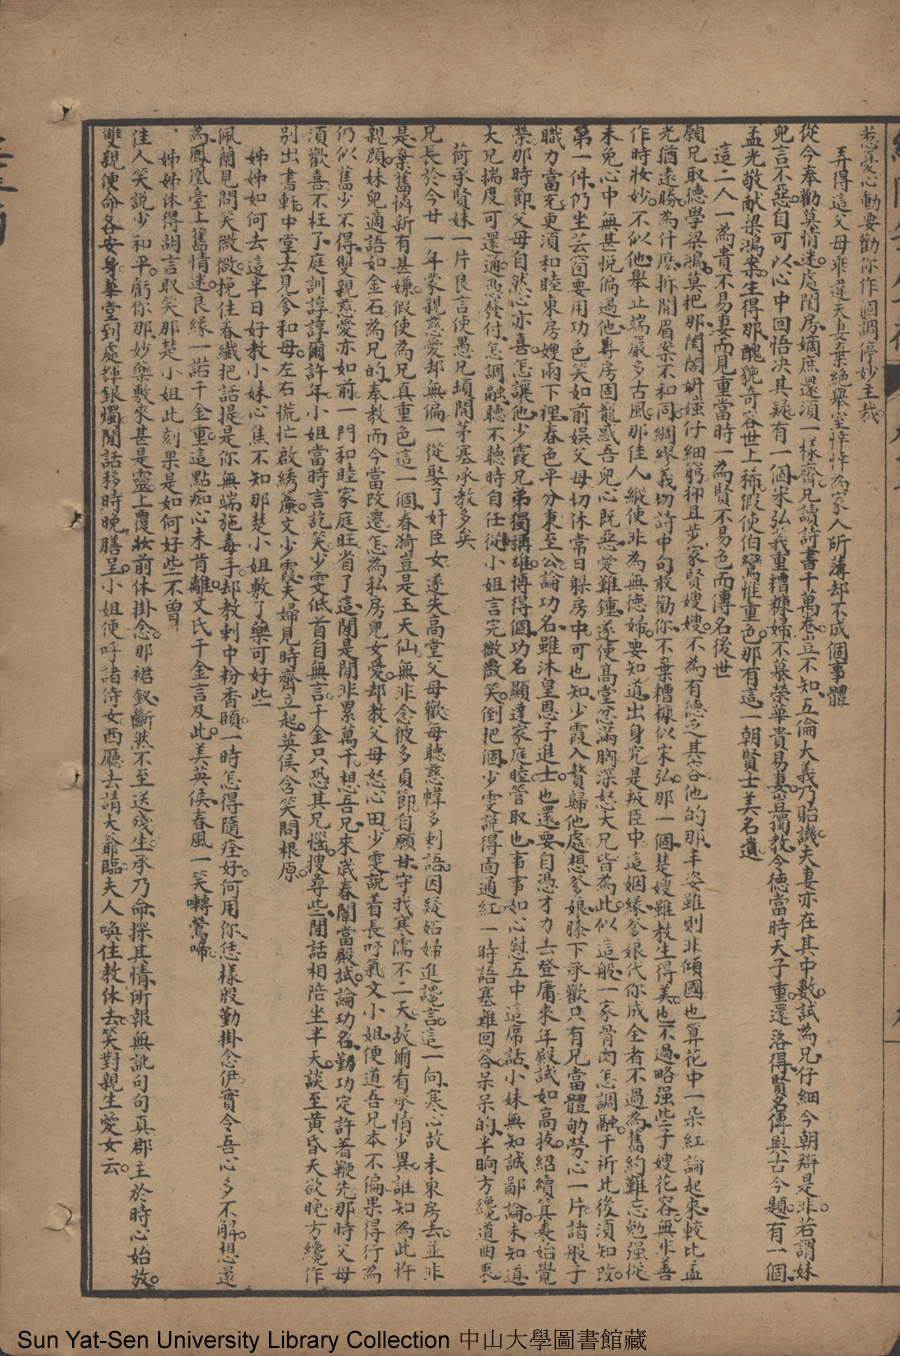 若憂心動要勸你作個調停妙主哉
弄得這父母乖違夫妻葉絕舉室悻悻為家人所薄却不成個事體
從今奉勸莫情迷處閨房嫡庶還須一樣齊兄讀詩書千萬卷立不知五倫大義乃貽譏夫妻亦在其中數試為兄仔細今朝辯是非若謂妹
兒言不惡自可以心中回悟決其疑有一個宋弘義重糟糠婦不慕榮華貴易妻豈獨教令德當時天子重還洛得賢名傳與古今題有一個
孟光敬献梁鴻案生得那醜貌奇容世上稀假使伯鸞惟重色那有這一朝賢士美名遺
這二人一為貴不易妻而見重當時一為賢不易色而傳名後世
願兄取德學梁鴻莫把那閨閤妍媸仔細窮
光猶遠勝為什麽拆開眉案不和同綢繆義切詩中句敢勸你不棄糟糠似宋弘那一個楚嫂雖教生得美也不過略强些子嫂花容無非善
作時妝妙不似他舉止端嚴多古風那佳人縱使非為無德婦要知道出身究是叛臣中這姻緣爹娘代你成全者不過為舊約難忘勉强從
未免心中無甚悅偏過他專房固寵惑吾兄心既惡愛難鍾遂使高堂忿滿胸深怒大兄皆為此似這般一家骨肉怎調融千祈此後須知改
第一件仍坐芸窗要用功色笑如前娛父母切休常日躲房中可也知少霞入贅歸他處想爹娘膝下承歡只有兄當體劬勞心一片諸般子
職力當充更須和睦東房嫂兩下裡春色平分東至公論功名雖沐皇恩子進士也還要自憑才力去登庸來年殿試如高拔紹續箕裘始覺
榮那時節父母自然心亦喜怎讓他少霞兄弟獨稱雄博得個功名顯達家庭睦管取也事事如心慰五中這席話小妹無知誠鄙論未知道
大兄揣度可還通憑發付怎調融聽不聽時自任從小姐言完微微笑倒把個少雯說得面通紅一時語塞難回答呆呆的半晌方纔道曲衷
荷承賢妹一片良言使愚兄頓開茅塞承教多矣
兄長於今廿一年蒙親慈愛却無偏一從娶了奸臣女遂失高堂父母歡每聽慈幃多刺語因疑姤婦進讒言這一向寒心故未東房去並非
是棄舊憐新有甚嫌假使為兄真重色這一個春漪豈是玉天仙無非念彼多貞節自願甘守我寒儒不二天故爾有承情少異誰知為此忤
親顏妹兒適語如金石為兄的奉教而今當改遷怎為私房兒女愛却教父母怒心田少雯說着長吁氣文小姐便道吾兄本不偏果得行為
仍似舊少不得雙親慈愛亦如前一門和睦家庭旺省了這閒是閒非累萬千想吾兄來歲春闈當殿試論功名勤功定許着鞭先那時父母
須歡喜不枉了庭訓諄諄爾許年小姐當時言訖笑少雯低首自無言千金只恐其兄惱搜尋些閒話相陪坐半天談至黃昏天欲晚方纔作
別出書軒中堂去見爹和母左右慌忙啟綉簾文少霞夫婦見時齊立起英侯含笑問根原
姊姊如何去這半日好教小妹心焦不知那楚小姐敷了藥可好些
佩蘭見問笑微微挽住春纖把話提是你無端施毒手却教刺中粉香頤一時怎得隨痊好何用你恁樣殷勤掛念伊實令吾心多不解想還
為鳳凰臺上舊情迷良緣一諾千金重這點痴心未肯離文氏千金言及此美英侯春風一笑囀鶯啼
姊姊休得胡言取笑那楚小姐此刻果是如何好些不曾
佳人笑說少和平虧你那妙藥敷來甚是靈上覆妝前休掛念那裙釵斷然不至送殘生承乃命探其情所報無訛句句真郡主於時心始放
雙親便命各安身華堂到處輝銀燭閒話移時晚膳呈小姐便呼諸侍女西廳去請大爺臨夫人喚住教休去笑對親生愛女云
Sun Yat-Sen University Library Collection 中山大學圖書館藏